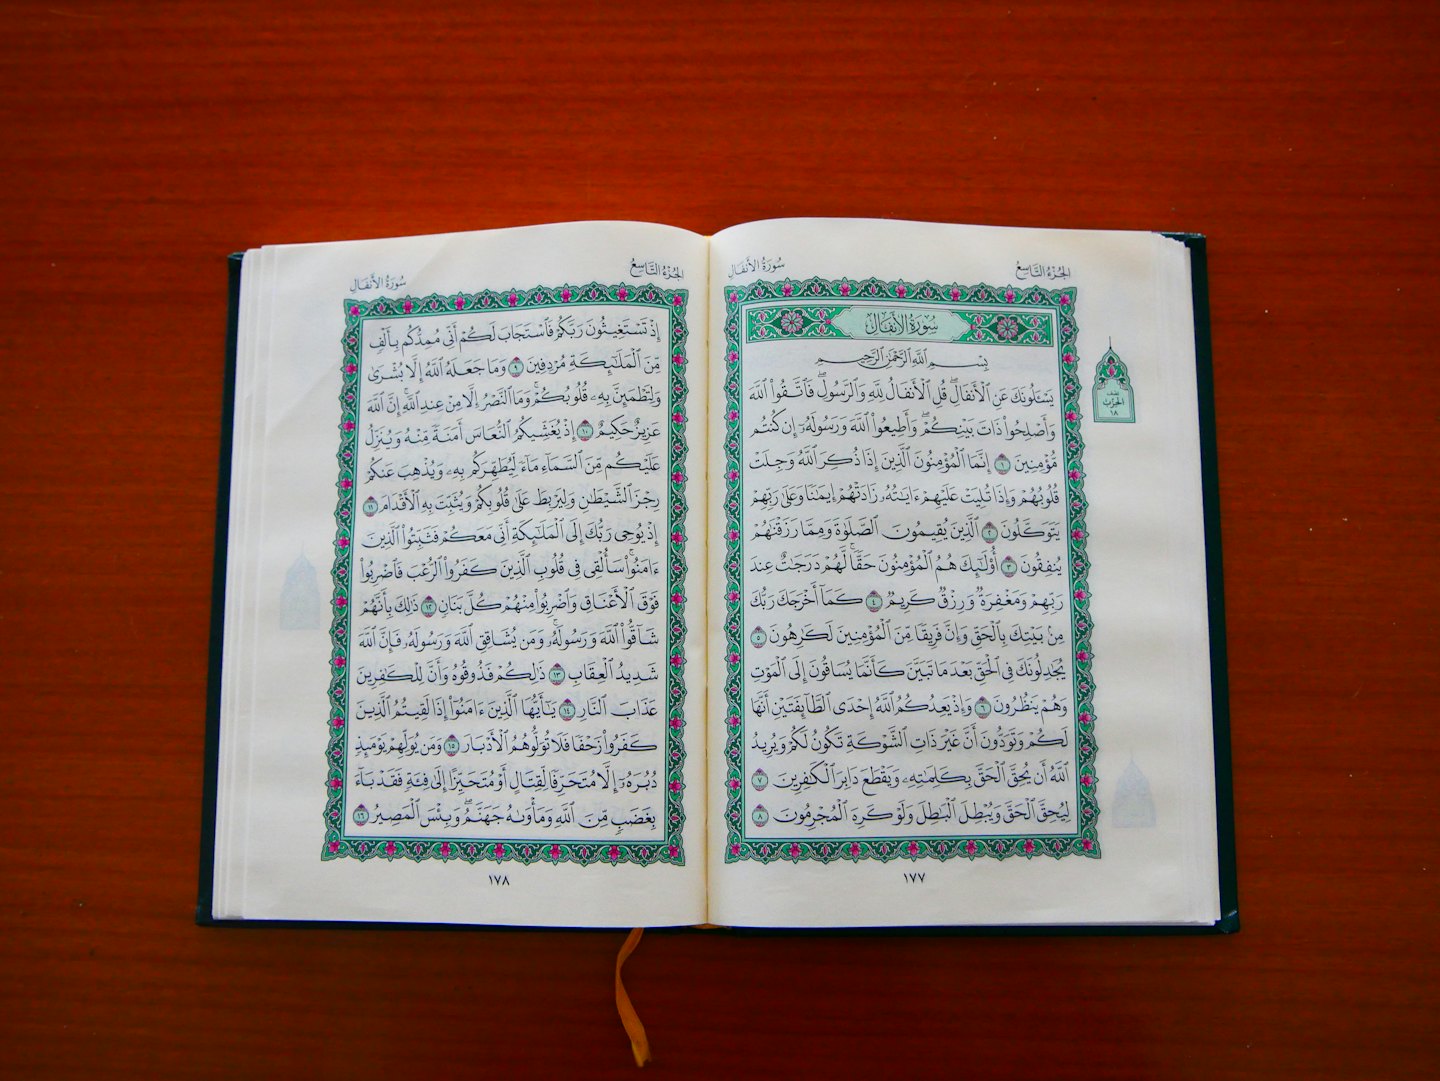 الجُزْءُ التَّاسِعُ
سُورَةُ الأَنفَالِ
سُورَةُ الأَنفَالِ
بِسْمِ ٱللَّهِ ٱلرَّحْمَٰنِ ٱلرَّحِيمِ
يَسْـَٔلُونَكَ عَنِ ٱلْأَنفَالِ ۖ قُلِ ٱلْأَنفَالُ لِلَّهِ وَٱلرَّسُولِ ۖ فَٱتَّقُوا۟ ٱللَّهَ
وَأَصْلِحُوا۟ ذَاتَ بَيْنِكُمْ ۖ وَأَطِيعُوا۟ ٱللَّهَ وَرَسُولَهُۥٓ إِن كُنتُم
مُّؤْمِنِينَ ١ إِنَّمَا ٱلْمُؤْمِنُونَ ٱلَّذِينَ إِذَا ذُكِرَ ٱللَّهُ وَجِلَتْ
قُلُوبُهُمْ وَإِذَا تُلِيَتْ عَلَيْهِمْ ءَايَٰتُهُۥ زَادَتْهُمْ إِيمَٰنًا وَعَلَىٰ رَبِّهِمْ
يَتَوَكَّلُونَ ٢ ٱلَّذِينَ يُقِيمُونَ ٱلصَّلَوٰةَ وَمِمَّا رَزَقْنَٰهُمْ
يُنفِقُونَ ٣ أُو۟لَٰٓئِكَ هُمُ ٱلْمُؤْمِنُونَ حَقًّا ۚ لَّهُمْ دَرَجَٰتٌ عِندَ
رَبِّهِمْ وَمَغْفِرَةٌ وَرِزْقٌ كَرِيمٌ ٤ كَمَآ أَخْرَجَكَ رَبُّكَ
مِنۢ بَيْتِكَ بِٱلْحَقِّ وَإِنَّ فَرِيقًا مِّنَ ٱلْمُؤْمِنِينَ لَكَٰرِهُونَ ٥
يُجَٰدِلُونَكَ فِى ٱلْحَقِّ بَعْدَ مَا تَبَيَّنَ كَأَنَّمَا يُسَاقُونَ إِلَى ٱلْمَوْتِ
وَهُمْ يَنظُرُونَ ٦ وَإِذْ يَعِدُكُمُ ٱللَّهُ إِحْدَى ٱلطَّآئِفَتَيْنِ أَنَّهَا
لَكُمْ وَتَوَدُّونَ أَنَّ غَيْرَ ذَاتِ ٱلشَّوْكَةِ تَكُونُ لَكُمْ وَيُرِيدُ
ٱللَّهُ أَن يُحِقَّ ٱلْحَقَّ بِكَلِمَٰتِهِۦ وَيَقْطَعَ دَابِرَ ٱلْكَٰفِرِينَ ٧
لِيُحِقَّ ٱلْحَقَّ وَيُبْطِلَ ٱلْبَٰطِلَ وَلَوْ كَرِهَ ٱلْمُجْرِمُونَ ٨
نصف
الحزب
١٨
١٧٧
الجُزْءُ التَّاسِعُ
سُورَةُ الأَنفَالِ
إِذْ تَسْتَغِيثُونَ رَبَّكُمْ فَٱسْتَجَابَ لَكُمْ أَنِّى مُمِدُّكُم بِأَلْفٍ
مِّنَ ٱلْمَلَٰٓئِكَةِ مُرْدِفِينَ ٩ وَمَا جَعَلَهُ ٱللَّهُ إِلَّا بُشْرَىٰ
وَلِتَطْمَئِنَّ بِهِۦ قُلُوبُكُمْ ۚ وَمَا ٱلنَّصْرُ إِلَّا مِنْ عِندِ ٱللَّهِ ۚ إِنَّ ٱللَّهَ
عَزِيزٌ حَكِيمٌ ١٠ إِذْ يُغَشِّيكُمُ ٱلنُّعَاسَ أَمَنَةً مِّنْهُ وَيُنَزِّلُ
عَلَيْكُم مِّنَ ٱلسَّمَآءِ مَآءً لِّيُطَهِّرَكُم بِهِۦ وَيُذْهِبَ عَنكُمْ
رِجْزَ ٱلشَّيْطَٰنِ وَلِيَرْبِطَ عَلَىٰ قُلُوبِكُمْ وَيُثَبِّتَ بِهِ ٱلْأَقْدَامَ ١١
إِذْ يُوحِى رَبُّكَ إِلَى ٱلْمَلَٰٓئِكَةِ أَنِّى مَعَكُمْ فَثَبِّتُوا۟ ٱلَّذِينَ
ءَامَنُوا۟ ۚ سَأُلْقِى فِى قُلُوبِ ٱلَّذِينَ كَفَرُوا۟ ٱلرُّعْبَ فَٱضْرِبُوا۟
فَوْقَ ٱلْأَعْنَاقِ وَٱضْرِبُوا۟ مِنْهُمْ كُلَّ بَنَانٍ ١٢ ذَٰلِكَ بِأَنَّهُمْ
شَآقُّوا۟ ٱللَّهَ وَرَسُولَهُۥ ۚ وَمَن يُشَاقِقِ ٱللَّهَ وَرَسُولَهُۥ فَإِنَّ ٱللَّهَ
شَدِيدُ ٱلْعِقَابِ ١٣ ذَٰلِكُمْ فَذُوقُوهُ وَأَنَّ لِلْكَٰفِرِينَ
عَذَابَ ٱلنَّارِ ١٤ يَٰٓأَيُّهَا ٱلَّذِينَ ءَامَنُوٓا۟ إِذَا لَقِيتُمُ ٱلَّذِينَ
كَفَرُوا۟ زَحْفًا فَلَا تُوَلُّوهُمُ ٱلْأَدْبَارَ ١٥ وَمَن يُوَلِّهِمْ يَوْمَئِذٍ
دُبُرَهُۥٓ إِلَّا مُتَحَرِّفًا لِّقِتَالٍ أَوْ مُتَحَيِّزًا إِلَىٰ فِئَةٍ فَقَدْ بَآءَ
بِغَضَبٍ مِّنَ ٱللَّهِ وَمَأْوَىٰهُ جَهَنَّمُ ۖ وَبِئْسَ ٱلْمَصِيرُ ١٦
١٧٨